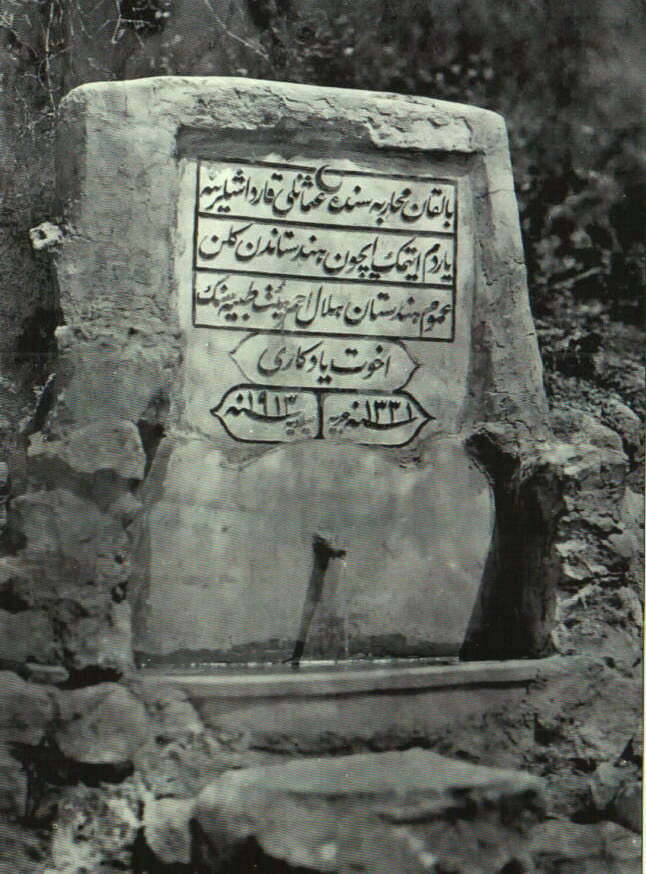 بالقان محاربه سنده عثمانلی قارداشلرینه
یاردم ایتمک ایچون هندستاندن کلن
عموم هندستان هلال احمر هیئت طبیه سنک
اخوت یادکاری
سنه ۱۳۳۱ هجریه سنه ۱۹۱۳